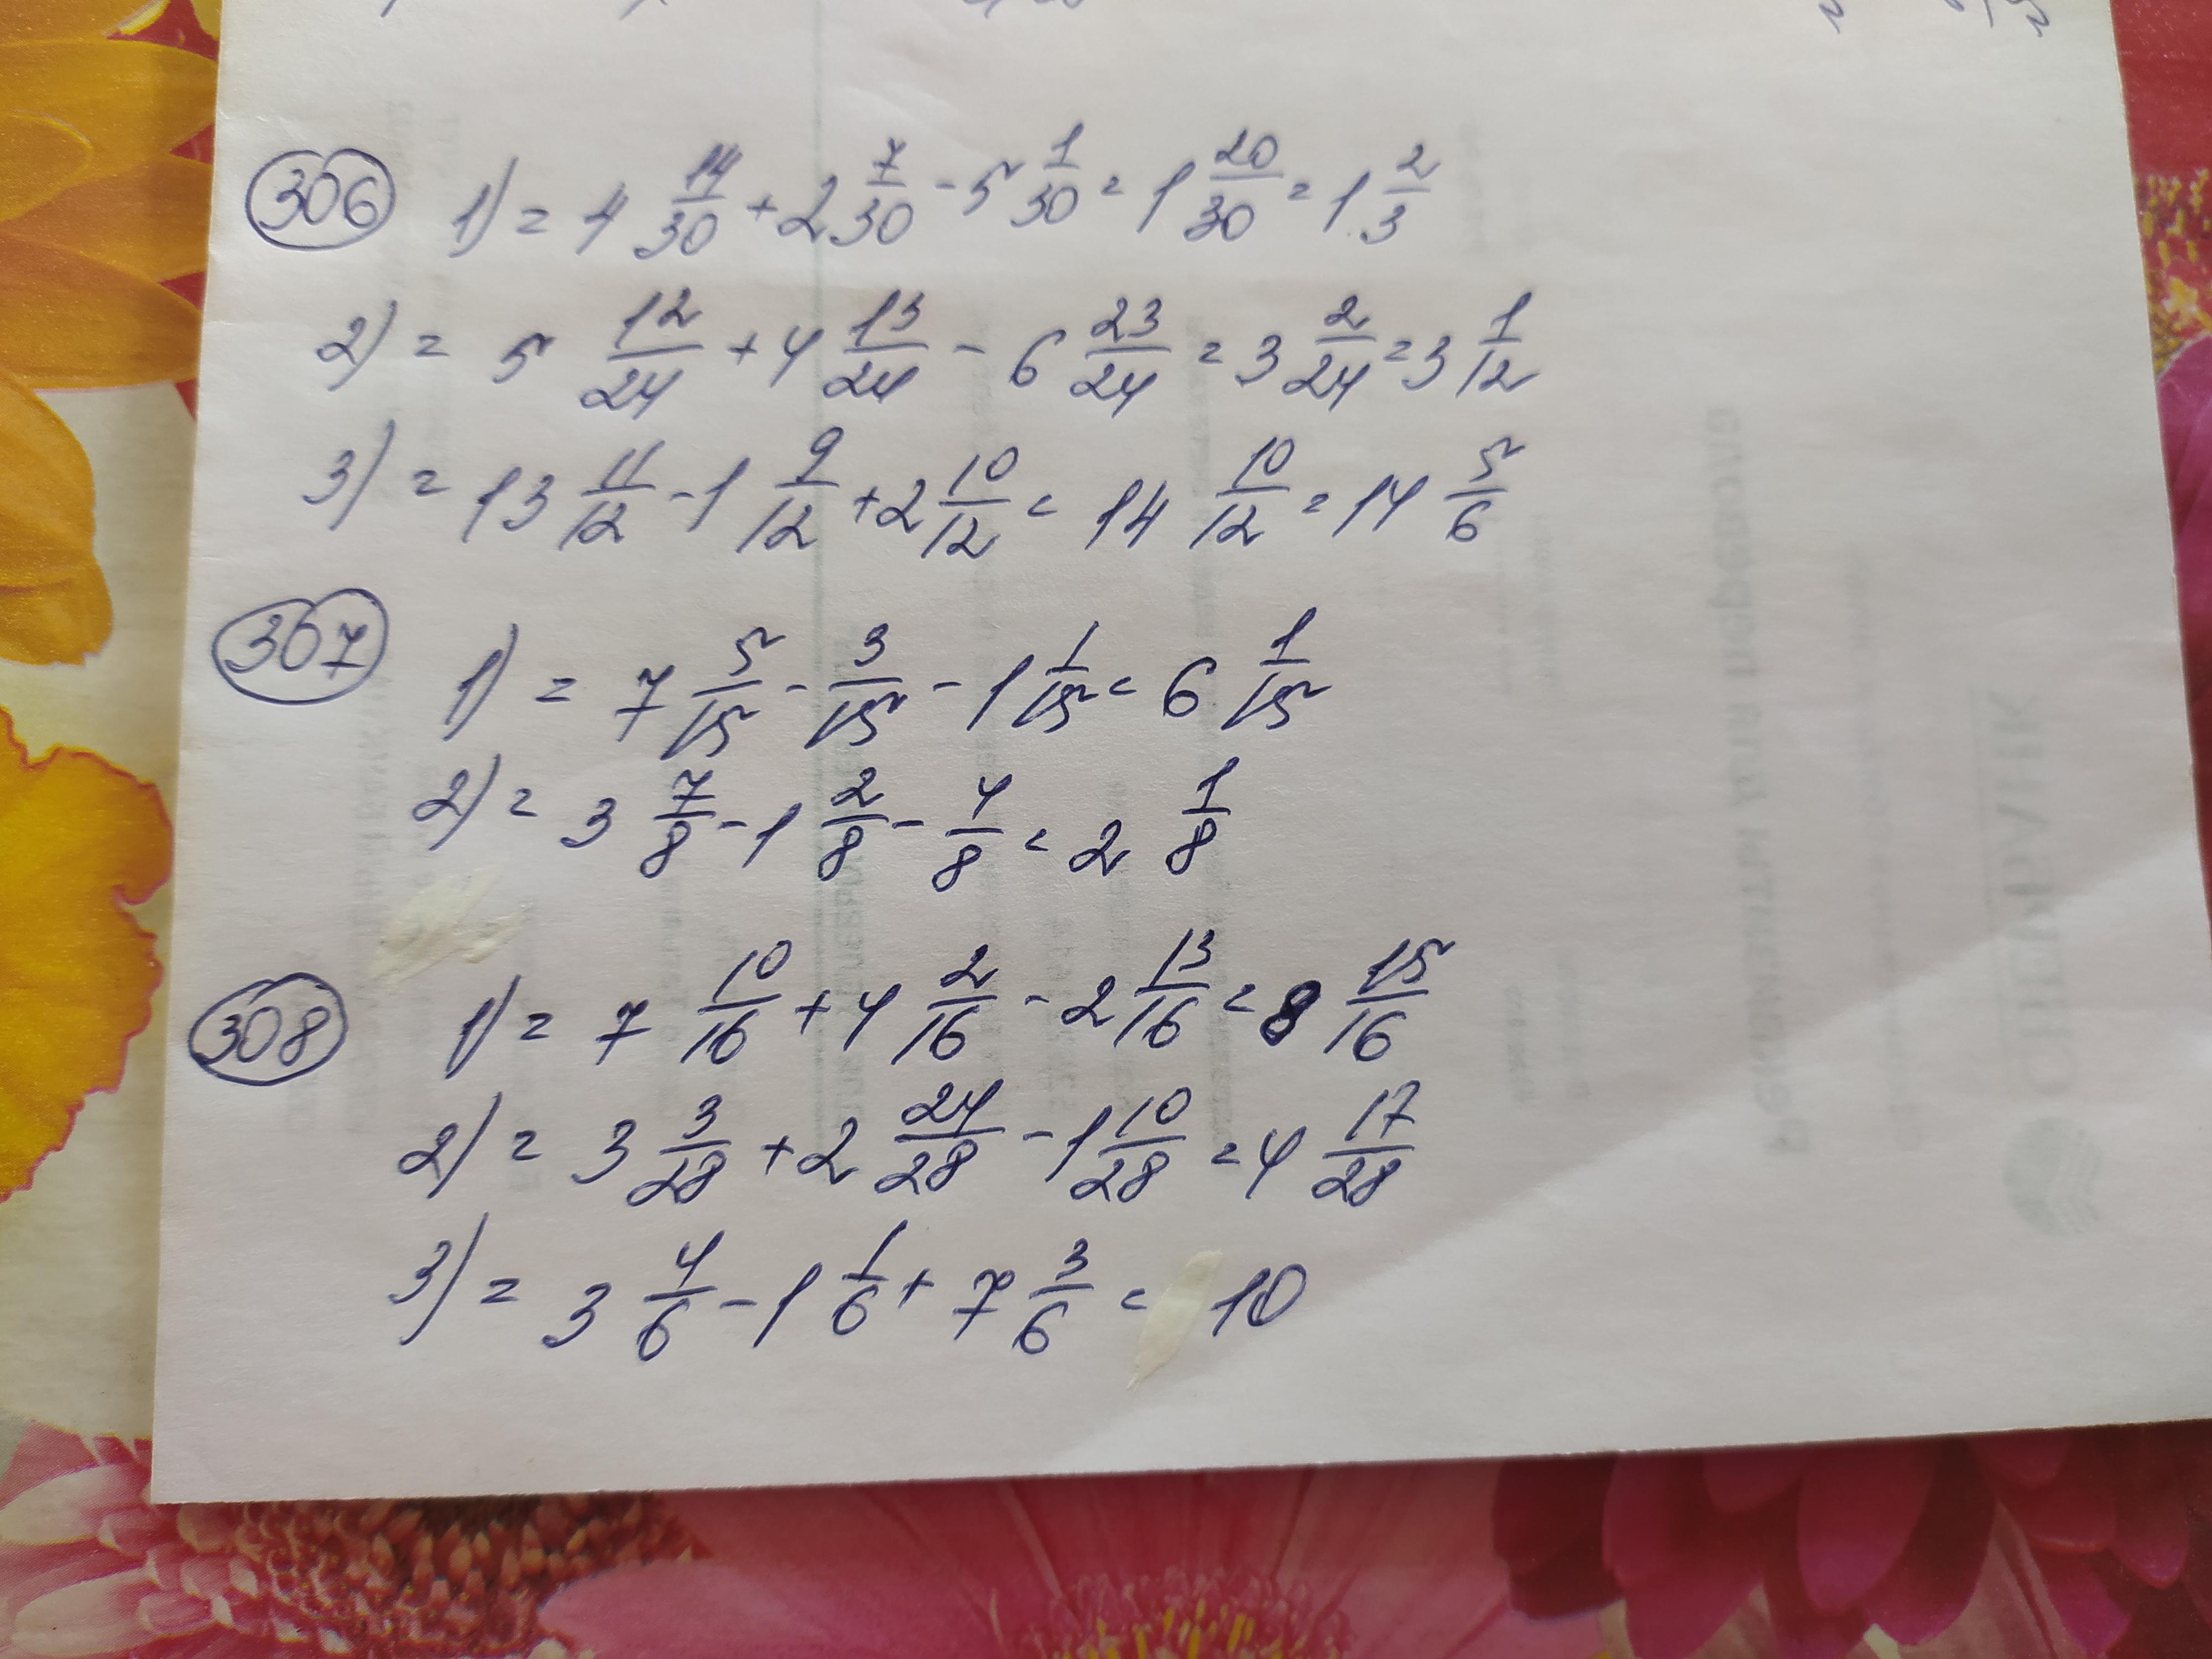 306 1) = 4 14/30 + 2 7/30 - 5 1/30 = 1 20/30 = 1 2/3
2) = 5 12/24 + 4 13/24 - 6 23/24 = 3 2/24 = 3 1/12
3) = 13 11/12 - 1 9/12 + 2 10/12 = 14 10/12 = 14 5/6
307 1) = 7 5/15 - 3/15 - 1 1/15 = 6 1/15
2) = 3 7/8 - 1 2/8 - 4/8 = 2 1/8
308 1) = 7 10/16 + 4 2/16 - 2 13/16 = 8 15/16
2) = 3 3/28 + 2 24/28 - 1 10/28 = 4 17/28
3) = 3 4/6 - 1 1/6 + 7 3/6 = 10